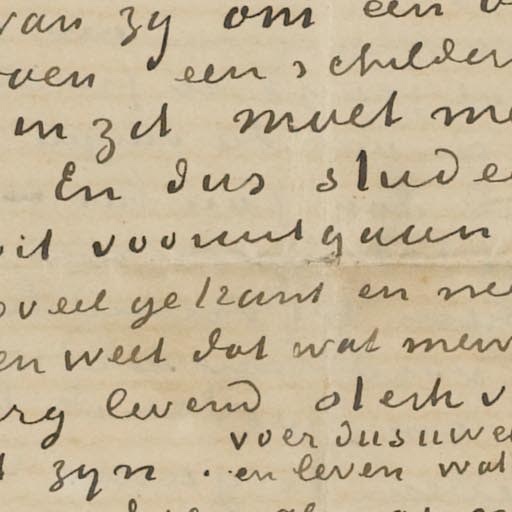 van zy om een
een schilder
in zit moet me
En dus stude
vooruitgaan
veel gekant en
en weet dat wat men
erg levend sterk v
voer dus uwe
zyn . en leven wat